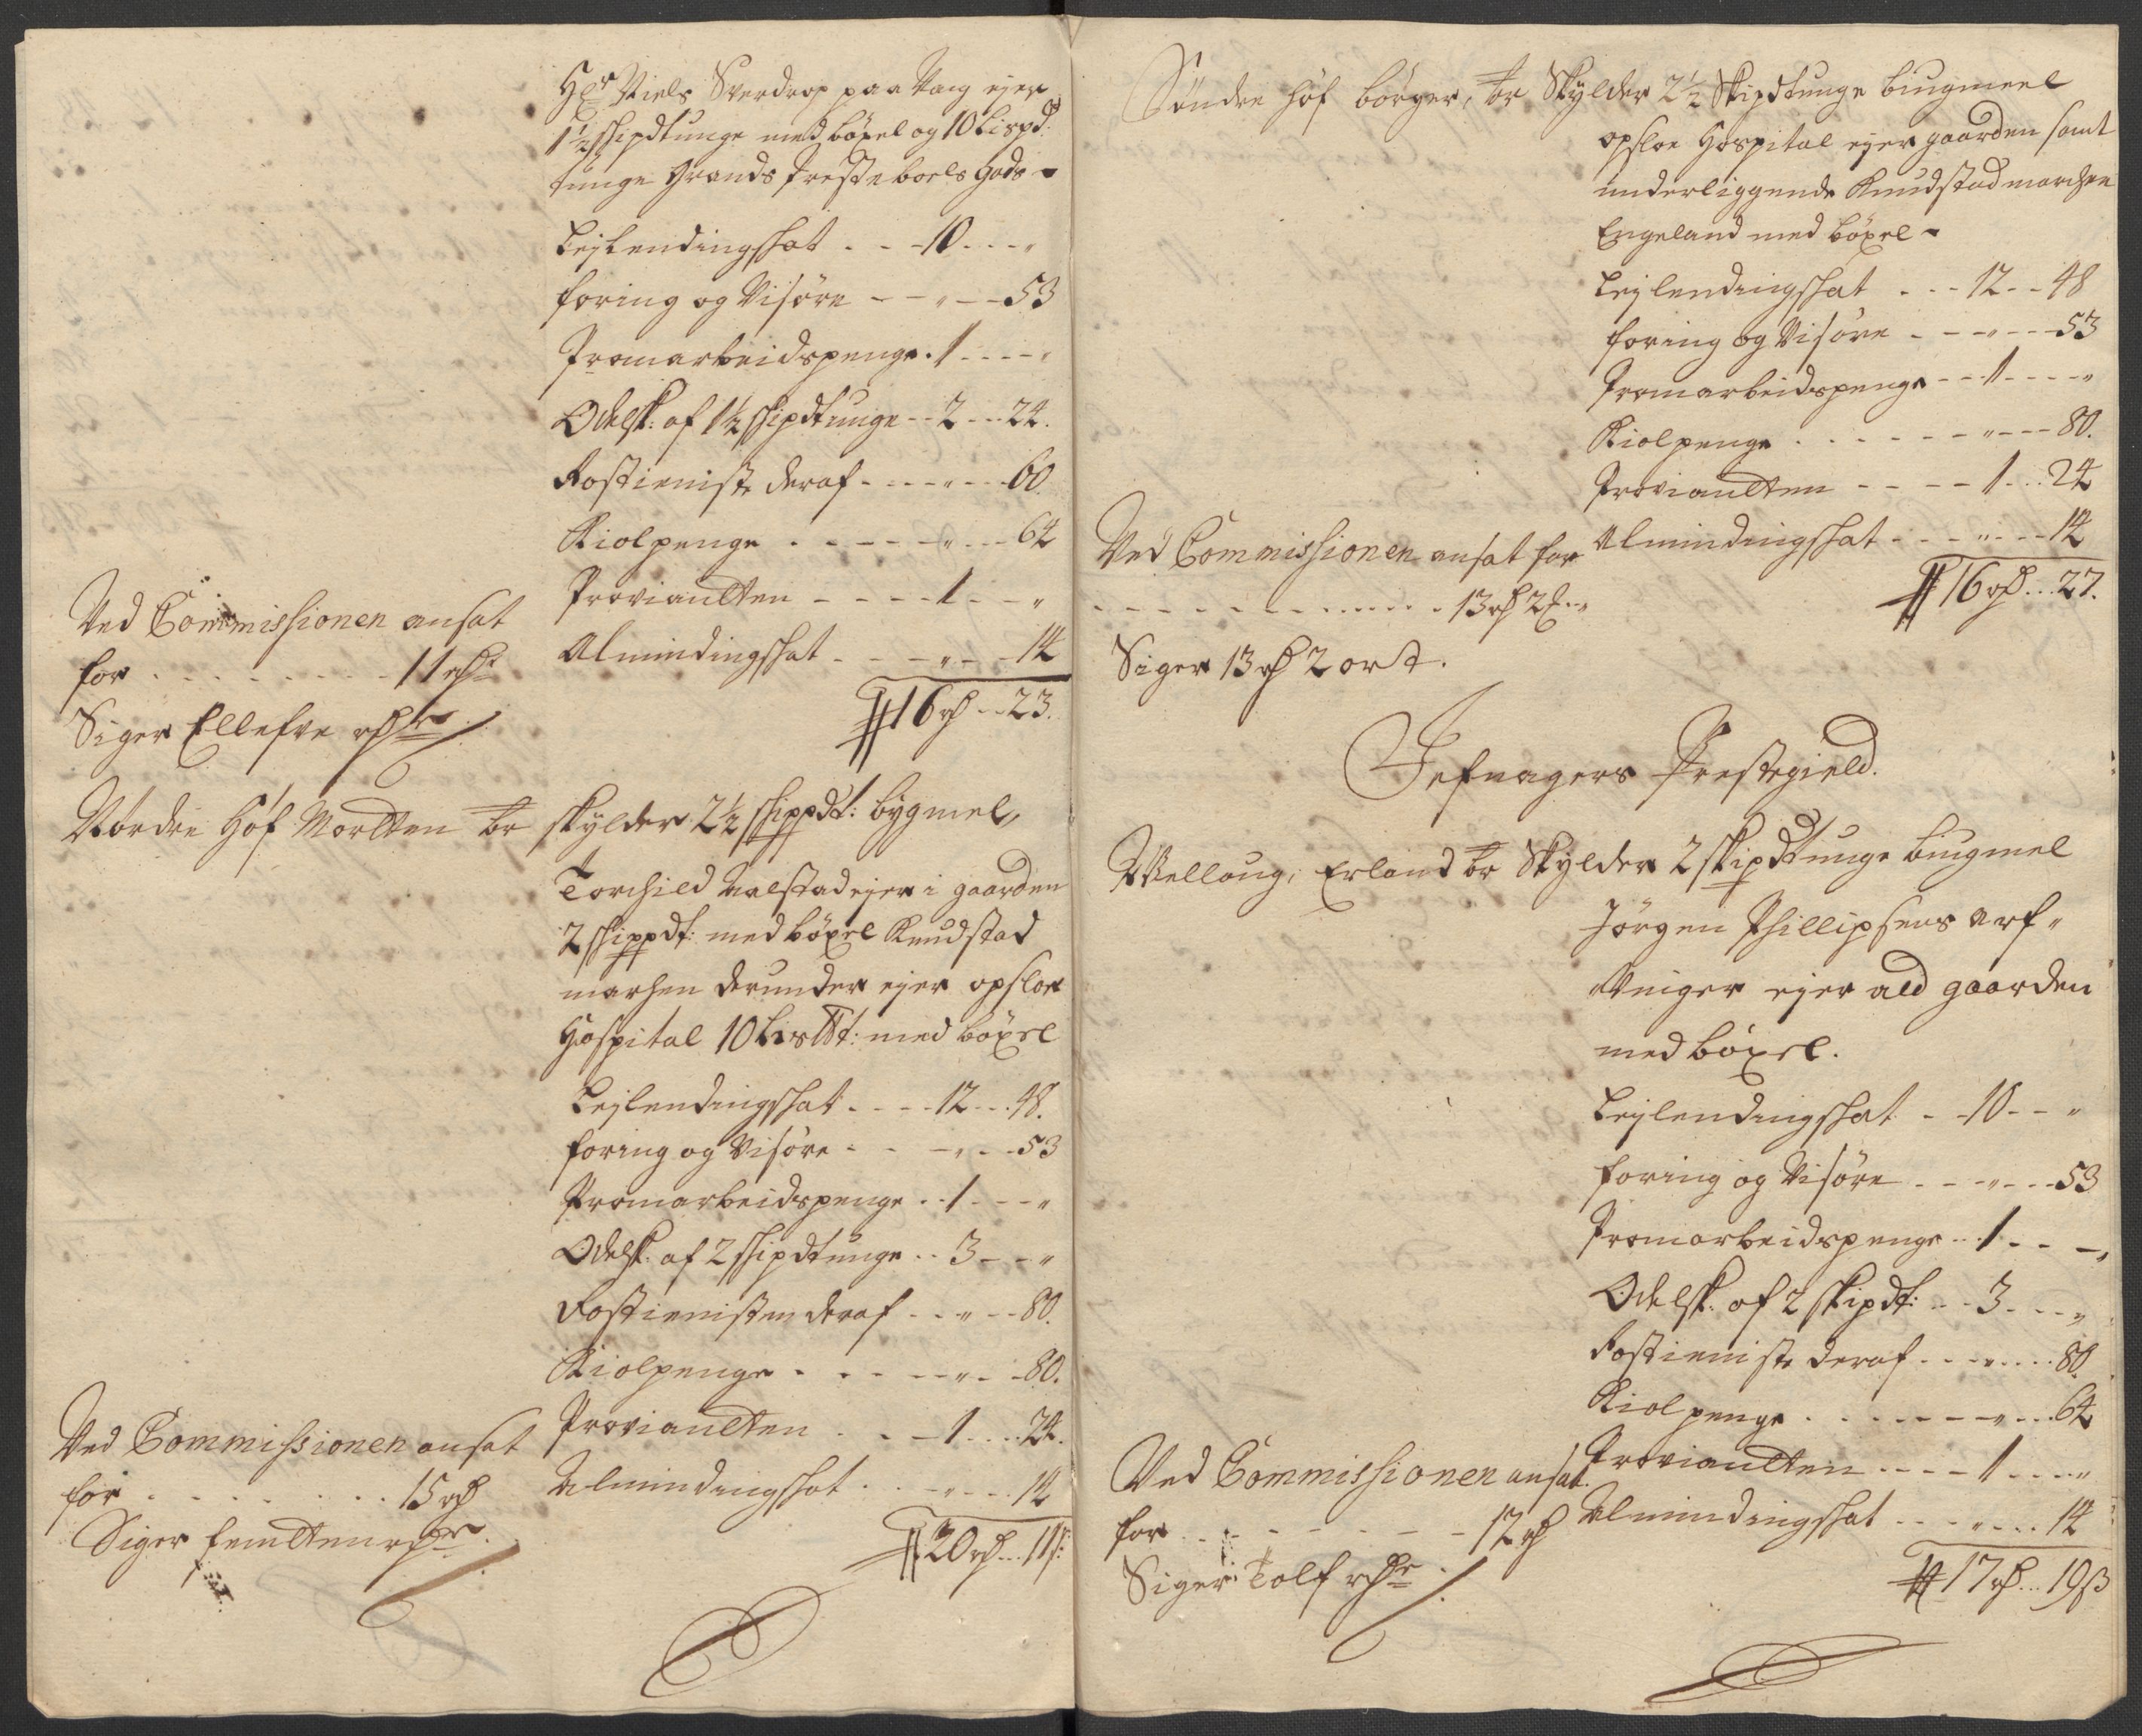 Hr Niels Sverdrop paa Vang ejer
1½ skipdtunge med böxel og 10 Lispd:
tunge Grands Præsteboels Gods -
Lejlendingskat . . - 10 . . . "
foring og Visöre - - " - - 53
Tromarbeidspenge . 1 . . . . "
Odelsk: af 1½ skipdtunge - - 2 . . . 24.
Rostieniste deraf - - - " - - 60
Kiolpenge . - - - - " - - 64
Proviandten - - - - 1 - - "
Almindingskat - - - " - - 14
16 rd - - 23.
Ved Commissionen ansat
for . . . . . . . . . 11 rdr
Siger Ellefve rdr
Nordre Höf Morten br skylder 2½ skippdt: bygmel,
Torchild Aalstad ejer i gaarden
2 skippdt: med böxel Knudstad
marken derunder ejer opsloe
Hospital 10 Lis℔t: med böxel
Lejlendingskat . . . . 12 . . . 48.
foring og Visöre - - - " - - 53
Tromarbeidspenge . . 1 . - - "
Odelsk: af 2 skipdtunge . . 3 - - "
Rostienisten deraf . . " - - 80.
Kiolpenge . . - - " . - 80.
Proviandten . . - 1 . . . . 24.
Almindingskat . . . " . . . 14
20 rd . . . 11 s:
Ved Commissionen ansat
for . . . . . . . 15 rd
Siger femdten rdr.
Söndre höf börger, br Skylder 2½ Skipdtunge biugmeel
opsloe Hospital ejer gaarden samt
underliggende Knudstad marchen
Engeland med böxel -
Lejlendingskat . . . 12 . . 48
foring og Visöre . - - " - - 53
Tromarbeidspenge - - 1 . - - - "
Kiolpenge . . . . - - - " - - - 80.
Proviandten - - - - 1 . . . 24
Almindingskat . . - - " . - - 14
16 rd . . . 27.
Ved Commissionen ansat for
- - - - - - - - . . . . . . 13 rd 2 . . "
Siger 13 rd 2 ort.
Jefnagers Prestegield.
Mellaug, Erland br Skylder 2 skipdtunge biugmel
Jörgen Phillipsens arf-
vinger ejer ald gaarden
med böxel.
Lejlendingskat . - 10 - - "
foring og Visöre . - - " - - 53
Tromarbeidspenge - . 1 . - - "
Odelsk: af 2 skipdt: - - 3 . . . "
Rostieniste deraf . . . " . . . . 80.
Kiolpenge . . . . - - - " . . . 64
Proviandten . . - - 1 . . . . "
Almindingskat . . . " . . . 14
17 rd . . . 19 ß
Ved Commissionen ansat.
for . . . - - - - 12 rd
Siger Tolf rdr.